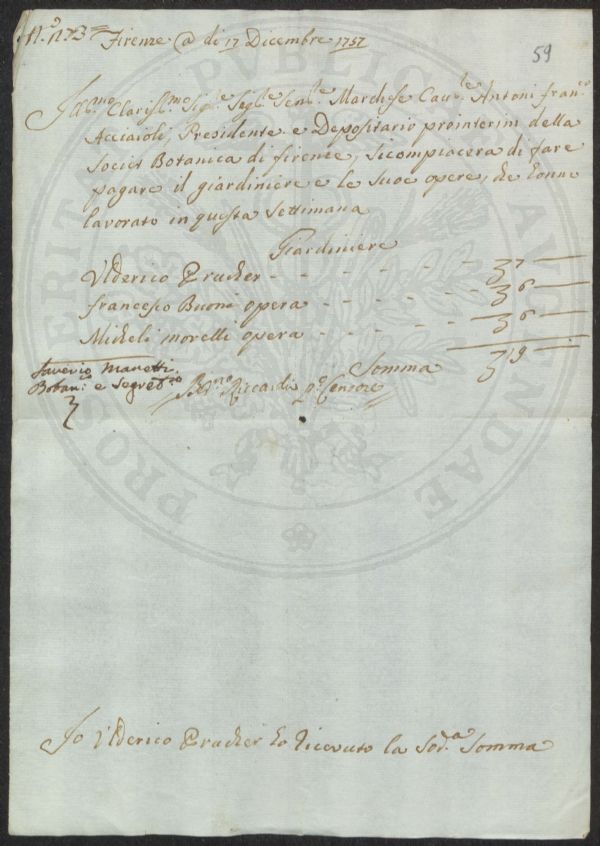 N.º 173 Firenze @ di 17 Dicembre 1757
59
Ill.mo Clariss.mo Sig.re Marchese Cav.re Antoni Fran.co
Acciaioli, Presidente e Depositario prointerim della
Societ Botanica di firenze, si compiacera di fare
pagare il giardiniere e le suoe opere, che Conno
lavorato in questa settimana
Giardiniere
Ulderico Prucher - - - - - - 37 —
francesco Buoni opera - - - - - 36 —
Micheli morelli opera - - - - - 36 —
Somma 319 —
Saverio Manetti
Botan.co e Segret.rio
Riccardi p.o Censore
Io Ulderico Prucher ho ricevuto la Sod.a Somma
PROSPERITATI PUBLICAE AUGENDAE